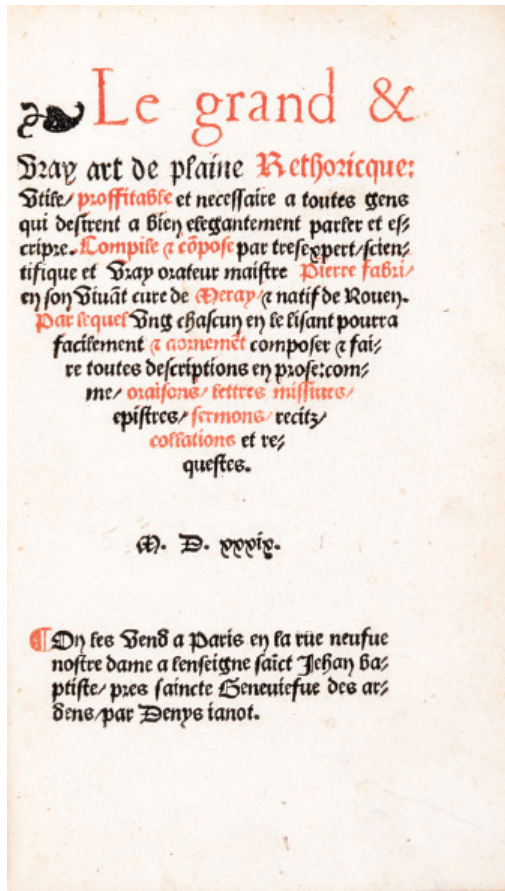 Le grand &
Vray art de plaine Rethoricque:
Vtile/ proffitable et necessaire a toutes gens
qui desirent a bien elegantement parler et es⸗
cripre. Compile ⁊ cōpose par tresexpert/scien⸗
tifique et Vray orateur maistre Pierre fabri/
en son Viuāt cure de Meray/⁊ natif de Rouen.
Par lequel Vng chascun en le lisant pourra
facilement ⁊ aornemēt composer ⁊ fai⸗
re toutes descriptions en prose:com⸗
me/ oraisons/ lettres missiues/
epistres/ sermons/ recitz/
collations et re⸗
questes.
M. D. xxxix.
¶ On les Vend a Paris en la rue neufue
nostre dame a lenseigne saīct Jehan ba⸗
ptiste/ pres saincte Geneuiefue des ar⸗
dens/par Denys ianot.